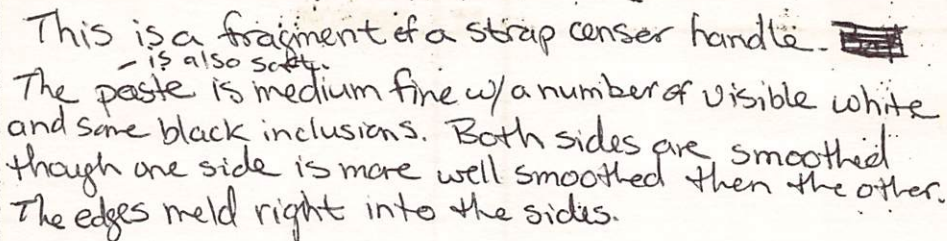 This is a fragment of a strap censer handle.
- is also soft.
The paste is medium fine w/ a number of visible white
and some black inclusions. Both sides are smoothed
though one side is more well smoothed then the other.
The edges meld right into the sides.